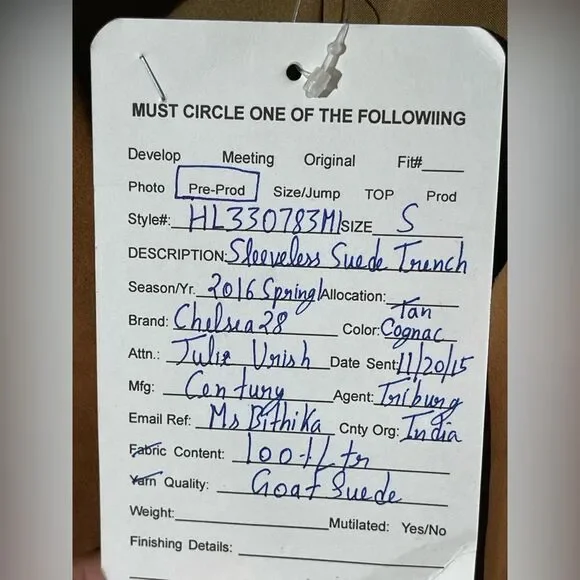 MUST CIRCLE ONE OF THE FOLLOWIING
Develop Meeting Original Fit#____
Photo Pre-Prod Size/Jump TOP Prod
Style#: HL330783MI SIZE S
DESCRIPTION: Sleeveless Suede Trench
Season/Yr. 2016 Spring Allocation:
Brand: Chelsea28 Color: Tan Cognac
Attn.: Julie Urish Date Sent: 11/20/15
Mfg: Century Agent: Triburg
Email Ref: Ms Bithika Cnty Org: India
Fabric Content: 100% Ltr
Yarn Quality: Goat Suede
Weight: Mutilated: Yes/No
Finishing Details: